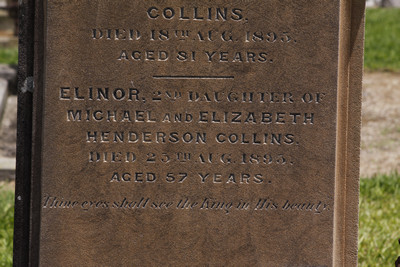 COLLINS.
DIED 18TH AUG. 1895.
AGED 81 YEARS.
ELINOR, 2ND DAUGHTER OF
MICHAEL AND ELIZABETH
HENDERSON COLLINS.
DIED 25TH AUG. 1895.
AGED 57 YEARS.
Thine eyes shall see the King in His beauty